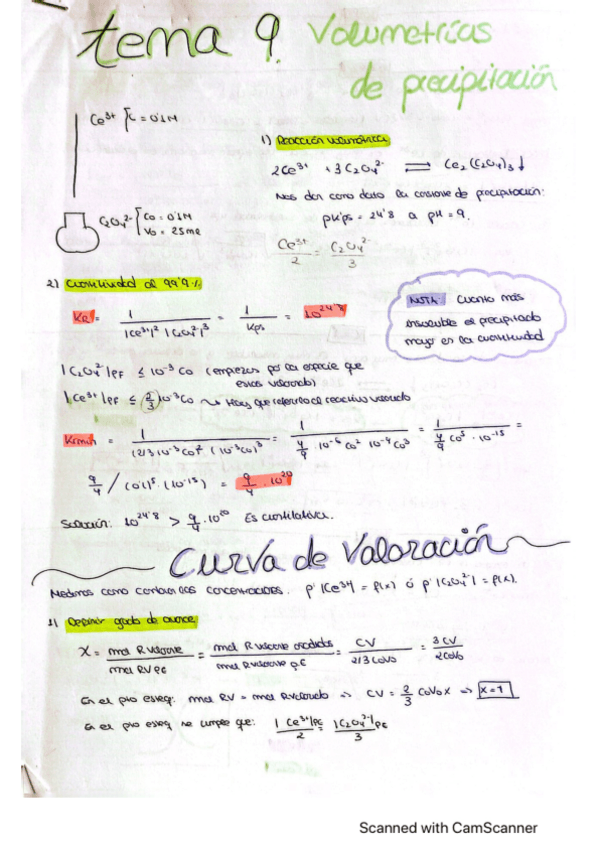 tema 9 Volumetrías
de precipitación
Ce³⁺ { C = 0'1M
1) Reacción volumétrica
2Ce³⁺ + 3C₂O₄²⁻ ⇌ Ce₂(C₂O₄)₃ ↓
Nos dan como dato la constante de precipitación:
pKps = 24'8 a pH = 9.
C₂O₄²⁻ { Co = 0'1M
Vo = 25 mL
Ce³⁺/2 = C₂O₄²⁻/3
2) Cuantitividad al 99'9%
KR = 1 / |Ce³⁺|² |C₂O₄²⁻|³ = 1 / Kps = 10^24'8
NOTA: Cuanto más
insoluble el precipitado
mayor es la cuantitividad
|C₂O₄²⁻|PF ≤ 10⁻³ Co (empezar por la especie que
estás valorando)
|Ce³⁺|PF ≤ (2/3) 10⁻³ Co → Hay que referirlo al reactivo valorado
Krmin = 1 / (2/3 10⁻³ Co)² · (10⁻³ Co)³ = 1 / 4/9 · 10⁻⁶ Co² 10⁻⁹ Co³ = 1 / 4/9 Co⁵ · 10⁻¹⁵ =
9/4 / (0'1)⁵ · (10⁻¹⁵) = 9/4 · 10²⁰
Solución: 10^24'8 > 9/4 · 10²⁰ Es cuantitativa.
Curva de Valoración
Medimos como cambian las concentraciones. p'|Ce³⁺| = f(x) ó p'|C₂O₄²⁻| = f(x).
1) Definir grado de avance
X = mol R valorante / mol RV pe = mol R valorante añadidos / mol R valorante p.e = CV / 2/3 CoVo = 3CV / 2CoVo
En el pto esteq: mol RV = mol Rvalorado => CV = 2/3 CoVo x => x = 1
En el pto esteq se cumple que: |Ce³⁺|pe / 2 = |C₂O₄²⁻|pe / 3
Scanned with CamScanner